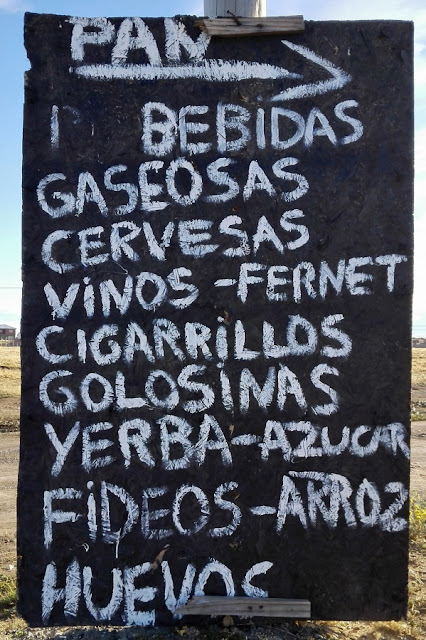 PAN
BEBIDAS
GASEOSAS
CERVESAS
VINOS - FERNET
CIGARRILLOS
GOLOSINAS
YERBA - AZUCAR
FIDEOS - ARROZ
HUEVOS